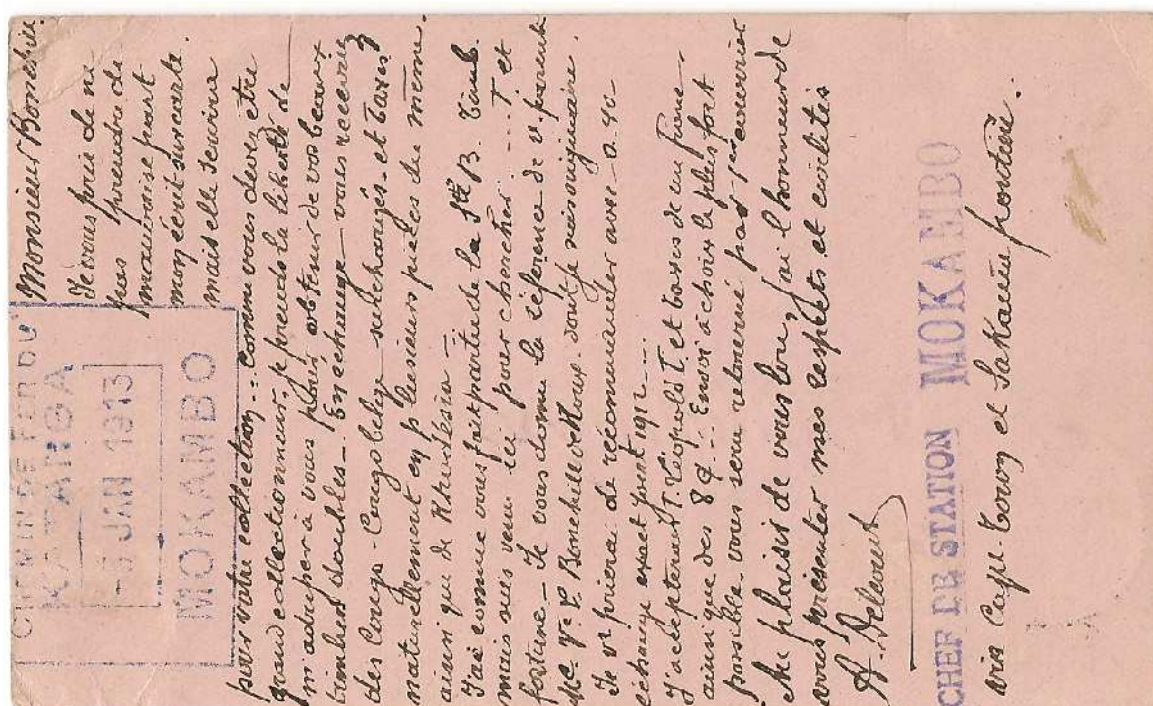 CHEMIN DE FER DU
KATANGA
-5 JAN 1913
MOKAMBO
Monsieur
Je vous prie de ne
pas prendre de
mauvaise part
mon écrit sur carte
mais elle servira
pour votre collection -. comme vous devez être
grand collectionneur, je prends la liberté de
m'adresser à vous pour obtenir de vos beaux
timbres doubles - En échange - vous recevriez
des Congo - Congo belge surchargés - et taxes
naturellement en plusieurs pièces du même.
ainsi que de Rhodésia -
J'ai comme vous fait partie de la Sté B. Timb.
mais suis venu ici pour chercher ---- T et
fortune - Je vous donne la référence de v. parent
Mr. Vr. V. dont je suis originaire.
Je v. prierai de recommander avec 0.40
échange expect Yvert 1912 -
J'accepterai T. Léopold II, et taxes de un franc -
ainsi que des 8 Envoi à choix le plus fort
possible vous sera retourné par 1er courrier
Au plaisir de vous lire, j'ai l'honneur de
vous présenter mes respects et civilités
A. Delevent
CHEF DE STATION MOKAMBO
via Cape-Town et Sakania frontière.